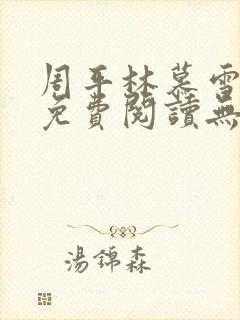 周平林慕雪
免費閱讀無
湯錦森